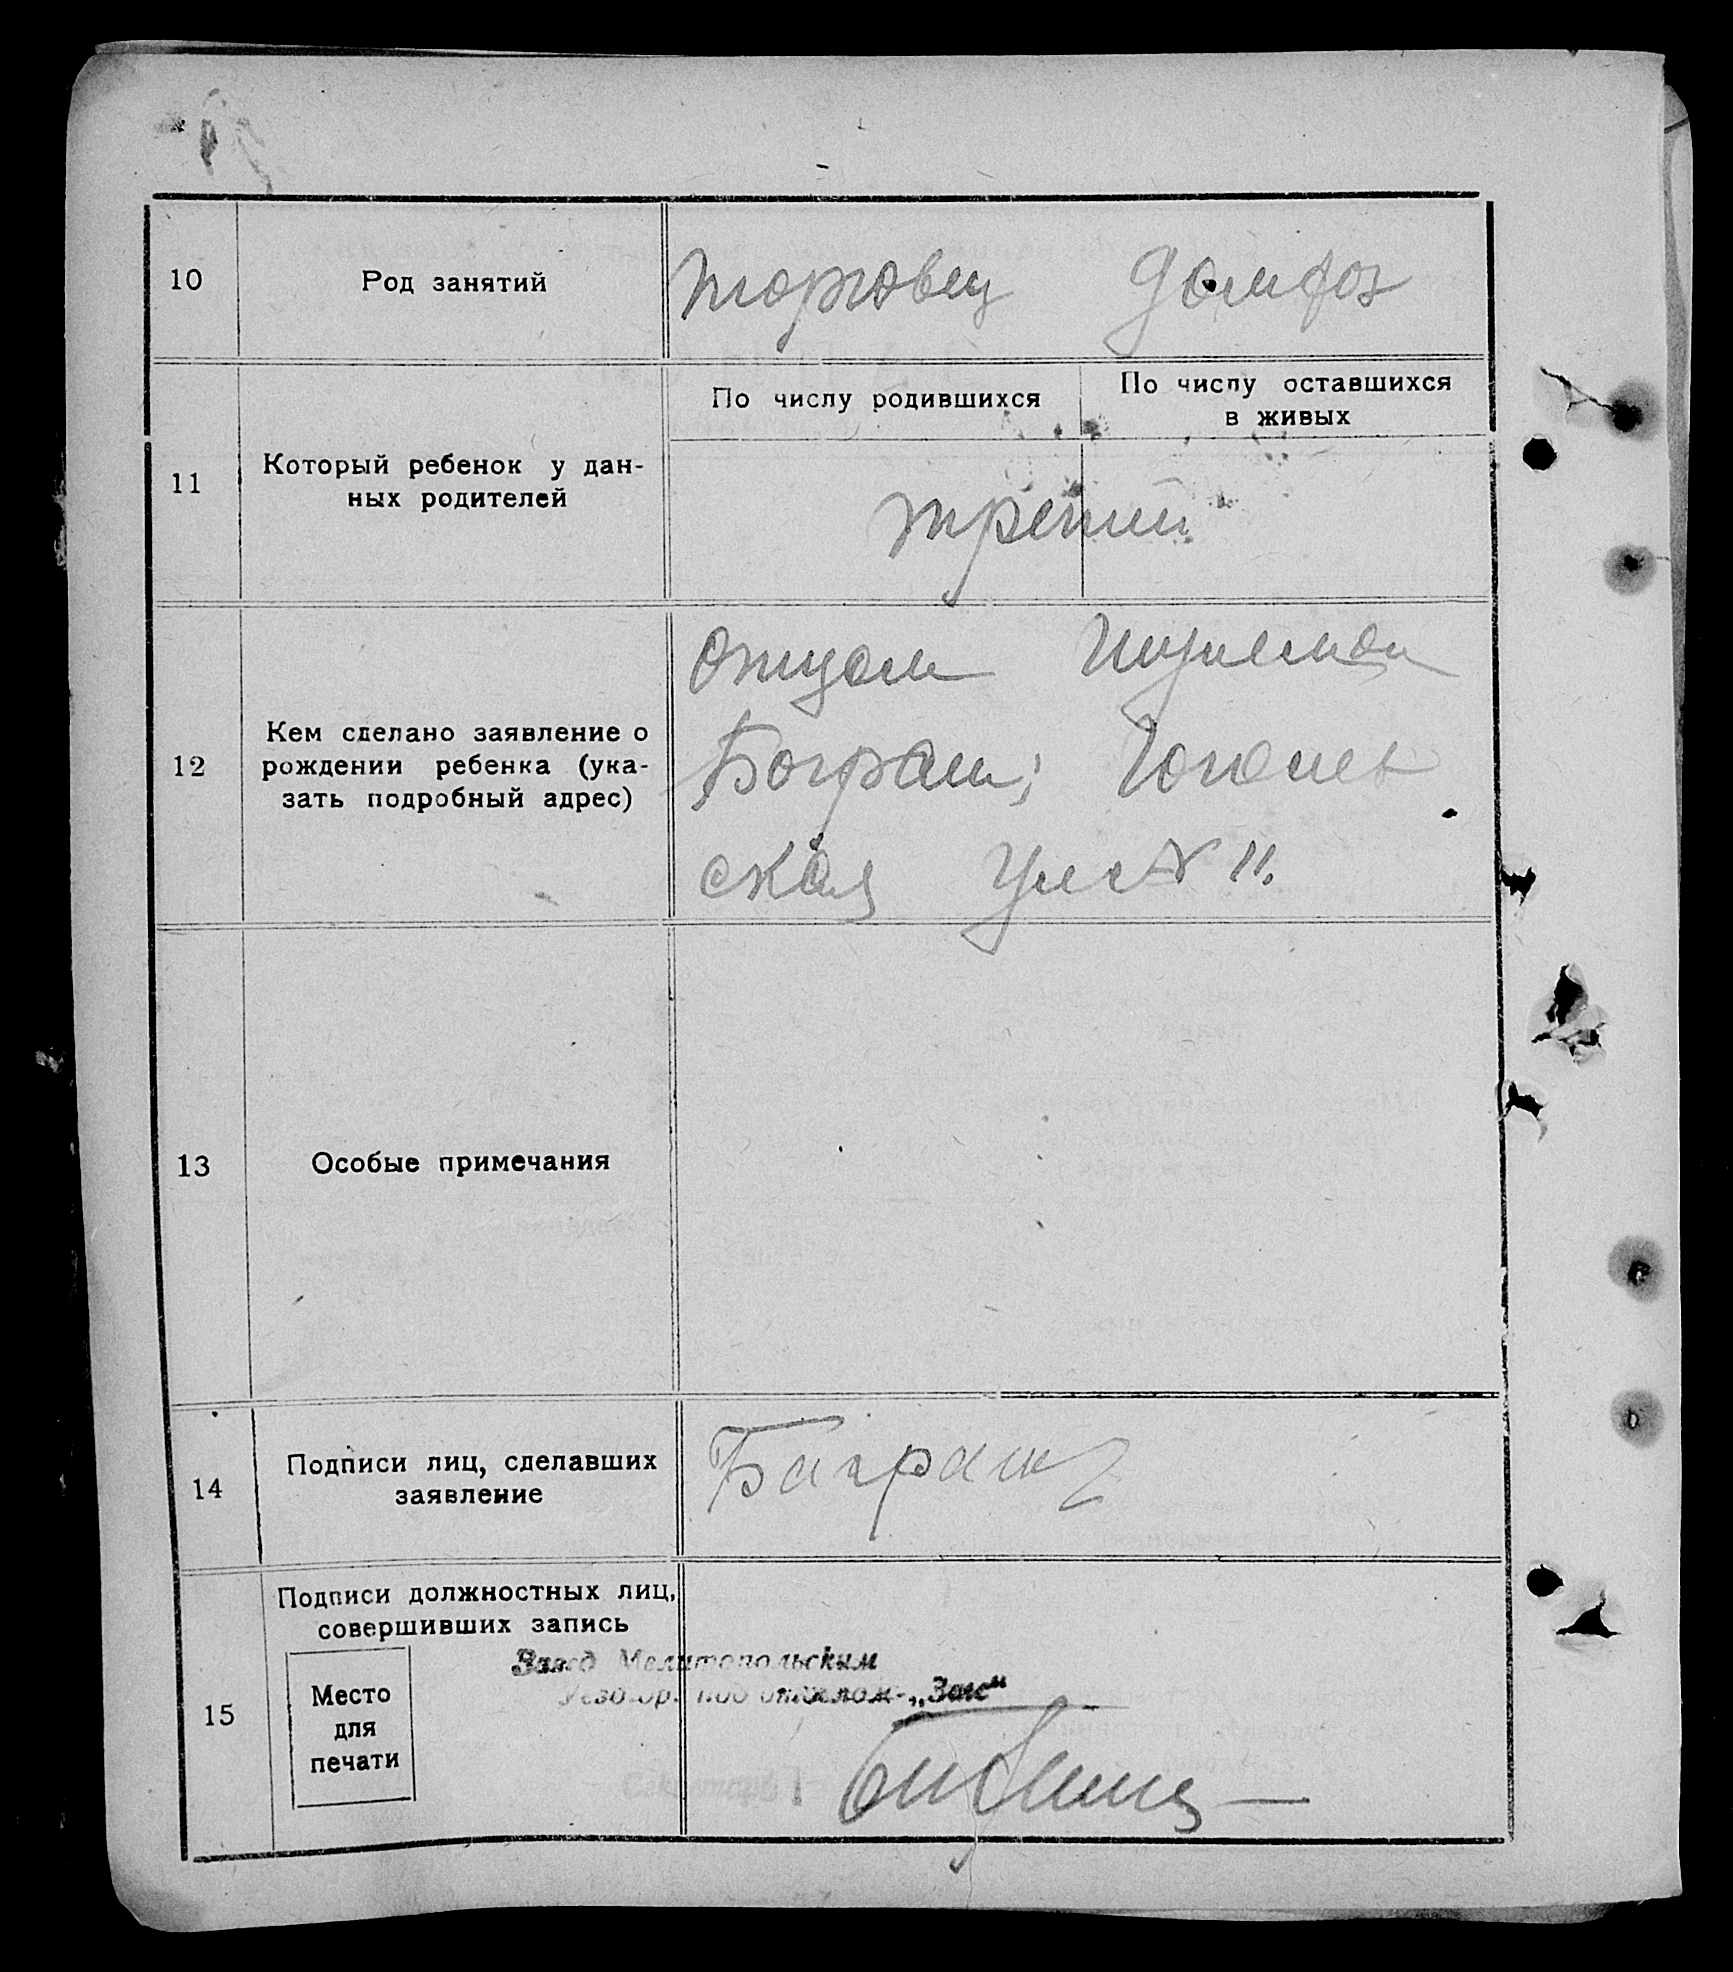 10 Род занятий торговец домхоз
По числу родившихся По числу оставшихся
в живых
11 Который ребенок у дан-
ных родителей третий
отцом
12 Кем сделано заявление о
рождении ребенка (ука-
зать подробный адрес)
Баграш;
ская ул № 11.
13 Особые примечания
14 Подписи лиц, сделавших
заявление Баграш
15 Подписи должностных лиц,
совершивших запись
Место
для
печати
Завед Мелитопольским
под отделом „Загс“
Секретарь